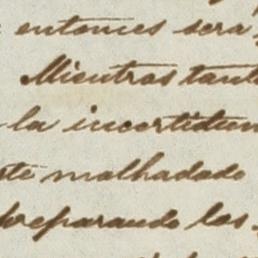 entonces será
Mientras tant
la incertidum
te malhadado
preparando los